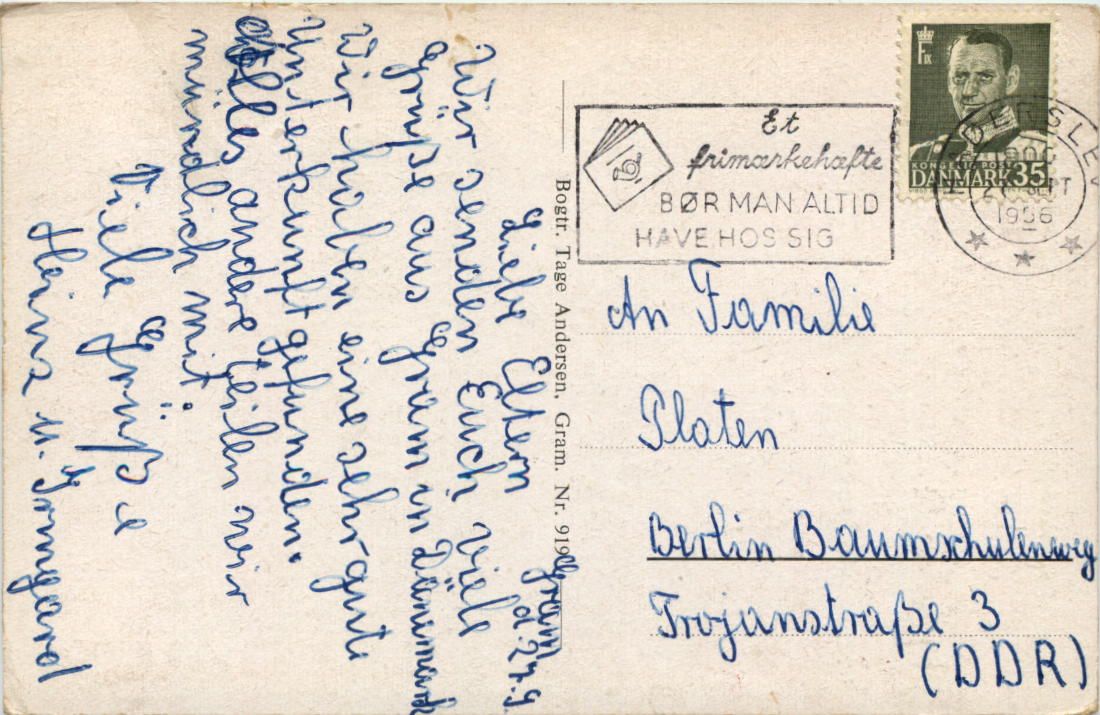 Gram
d. 27.9.
Liebe Eltern
Wir senden Euch viele
Grüße aus Gram in Dänemark
Wir haben eine sehr gute
Unterkunft gefunden.
Alles andere teilen wir
mündlich mit.
Viele Grüße
Heinz u. Irmgard
Bogtr. Tage Andersen, Gram. Nr. 919
Et
frimærkehæfte
BØR MAN ALTID
HAVE HOS SIG
F IX
KONGELIG POST
DANMARK 35
SEPT
1956
An Familie
Platen
Berlin Baumschulenweg
Trojanstraße 3
(DDR)